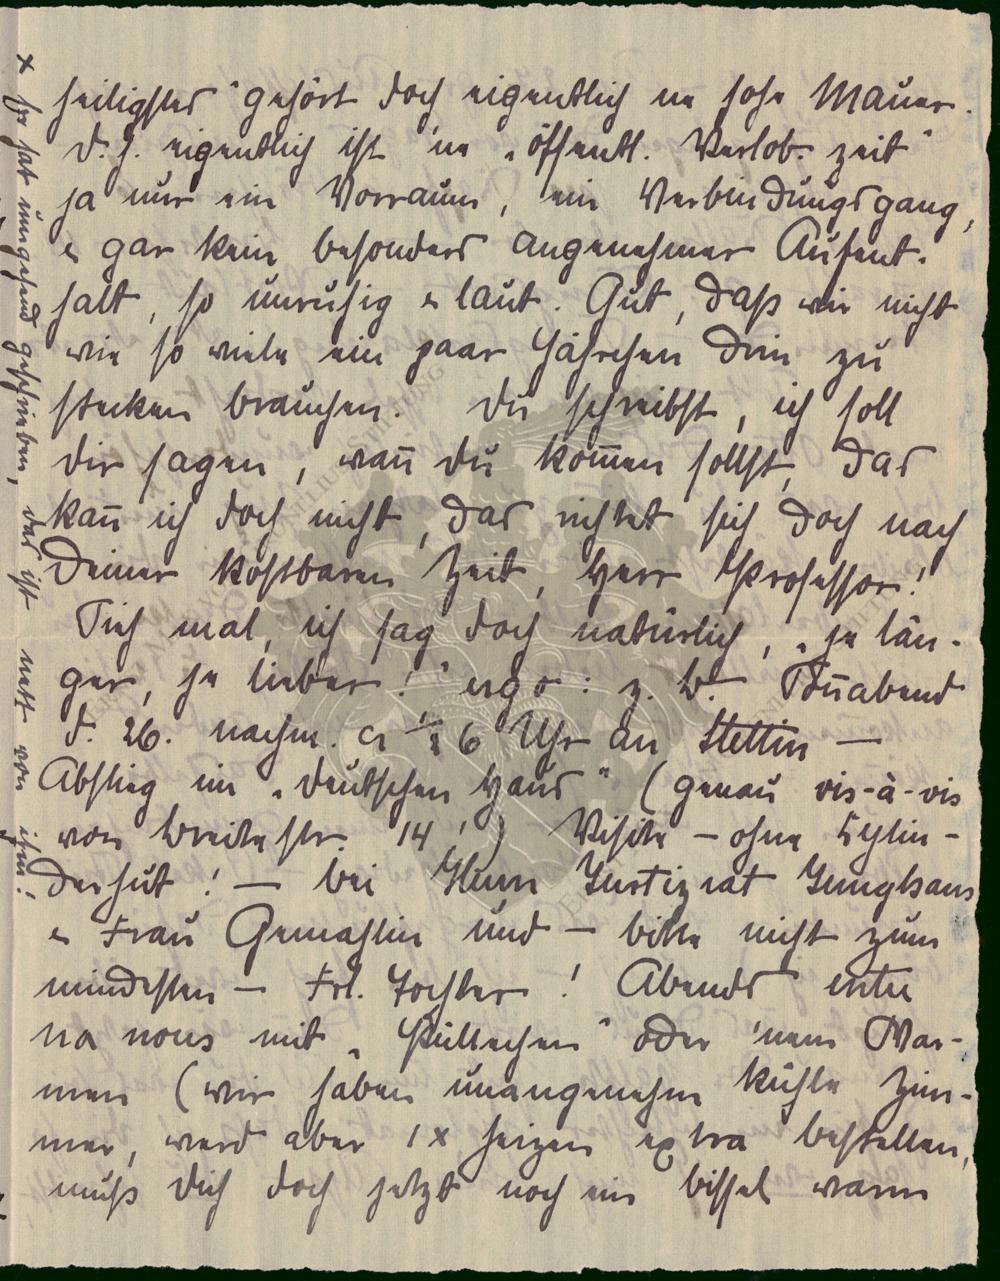 heiligstes" gehört doch eigentlich ne hohe Mauer.
D. h. eigentlich ist 'ne "öffentl. Verlob. zeit"
ja nur ein Vorraum, ein Verbindungsgang,
& gar kein besonders angenehmer Aufent-
halt, so unruhig & laut. Gut, daß wir nicht
wie so viele ein paar Jährchen drin zu
stecken brauchen. Du schreibst, ich soll
dir sagen, wan̄ du kom̄en sollst, das
kan̄ ich doch nicht, das richtet sich doch nach
Deiner kostbaren Zeit, Herr Professor!
Sieh mal, ich sag doch natürlich, "je län-
ger, je lieber!" ergo: z. B. Son̄abend
d. 26. nachm. ca 1/2 6 Uhr an Stettin —
Abstieg im "Deutschen Haus" (genau vis-à-vis
von Breitestr. 14!) Visite — ohne Cylin-
derhut! — bei Herrn Justizrat Junghans
& Frau Gemahlin und — bitte nicht zum
mindesten — Frl. Tochter! Abends entre
nous mit "Püllechen" oder 'nem War-
men (wir haben unangenehm kühle Zim-
mer, werd aber 1 x heizen extra bestellen,
muß dich doch jetzt noch ein bissel warm
x Er hat umgehend geschrieben, das ist nett von ihm!